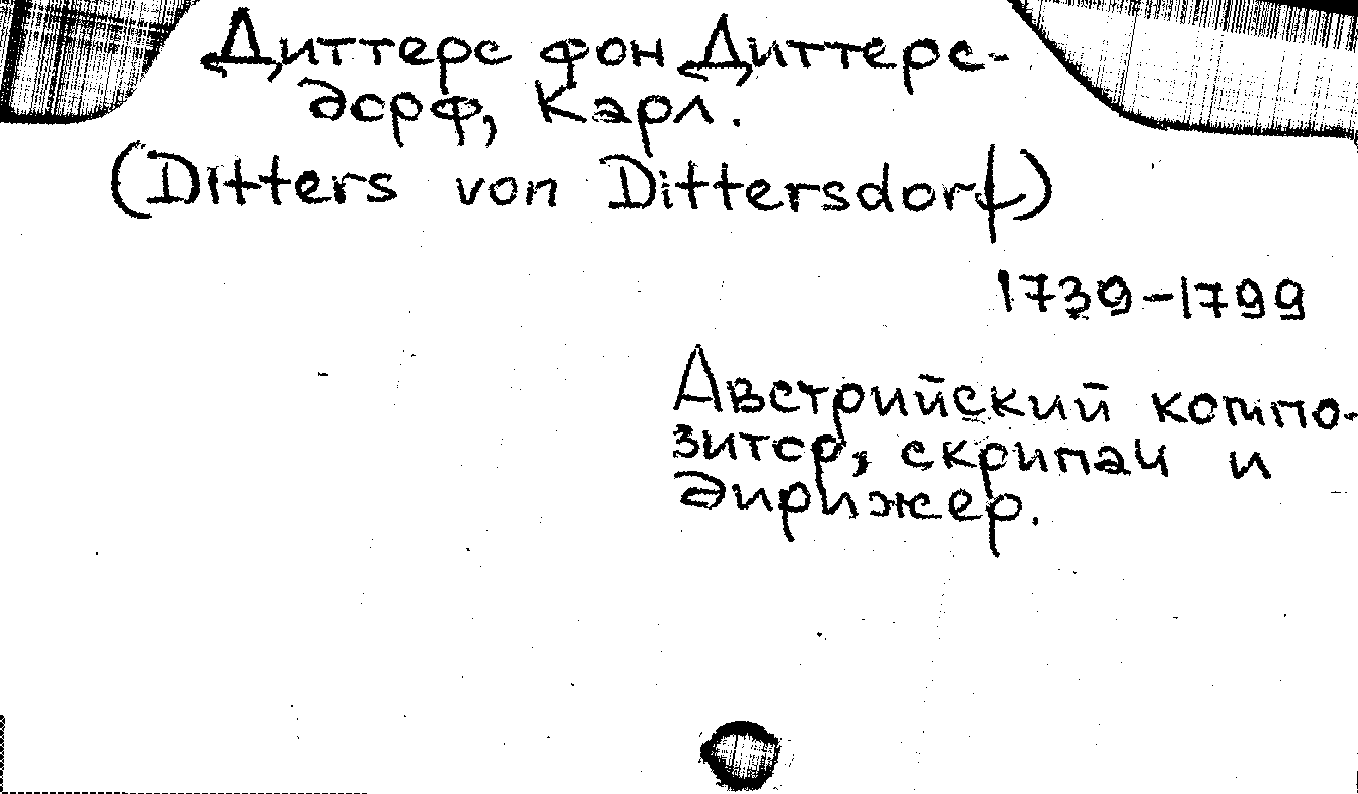 Диттерс фон Диттерс-
дорф, Карл.
(Ditters von Dittersdorf)
1739-1799
Австрийский компо-
зитор, скрипач и
дирижер.